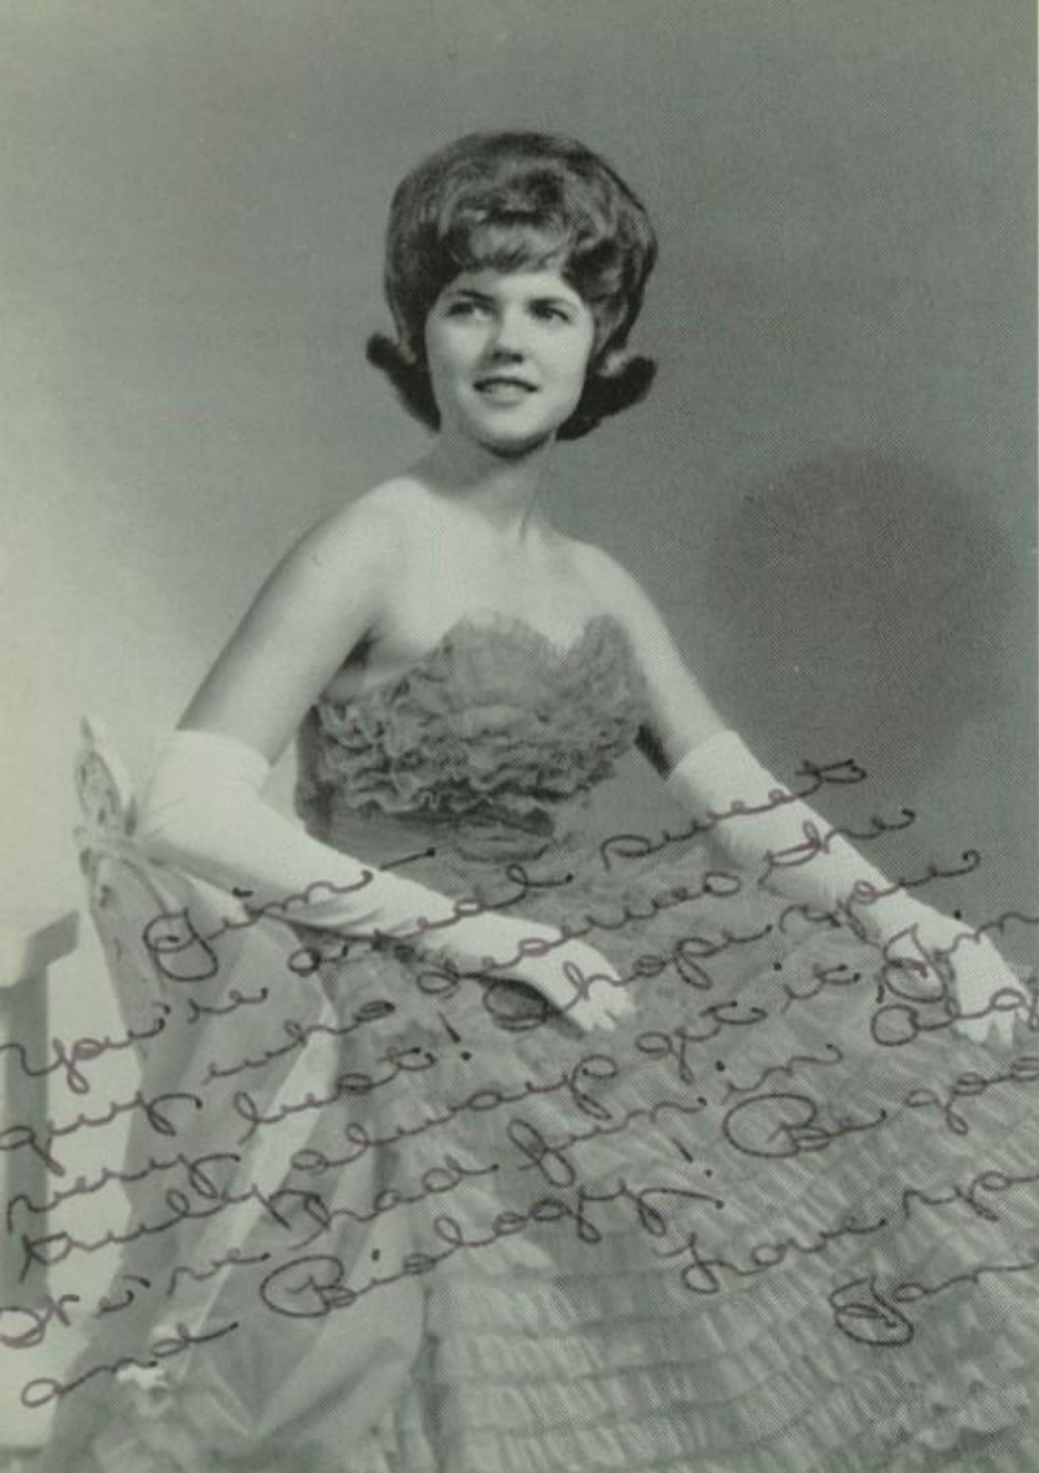 Jim -
You're a real sweet
guy who deserves the
very best! I hope you
truly always get it, Jim
We've had fun in Alg
and Biology! Be good
Love ya